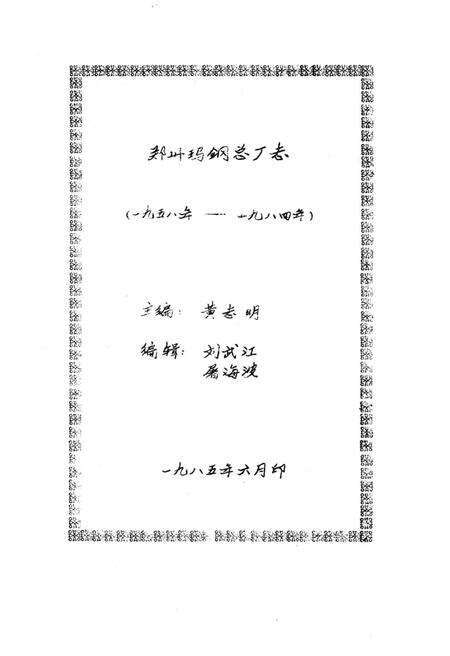 郑州玛钢总厂志
(一九五八年 —— 一九八四年)
主编: 黄志明
编辑: 刘武江
屠海波
一九八五年六月印